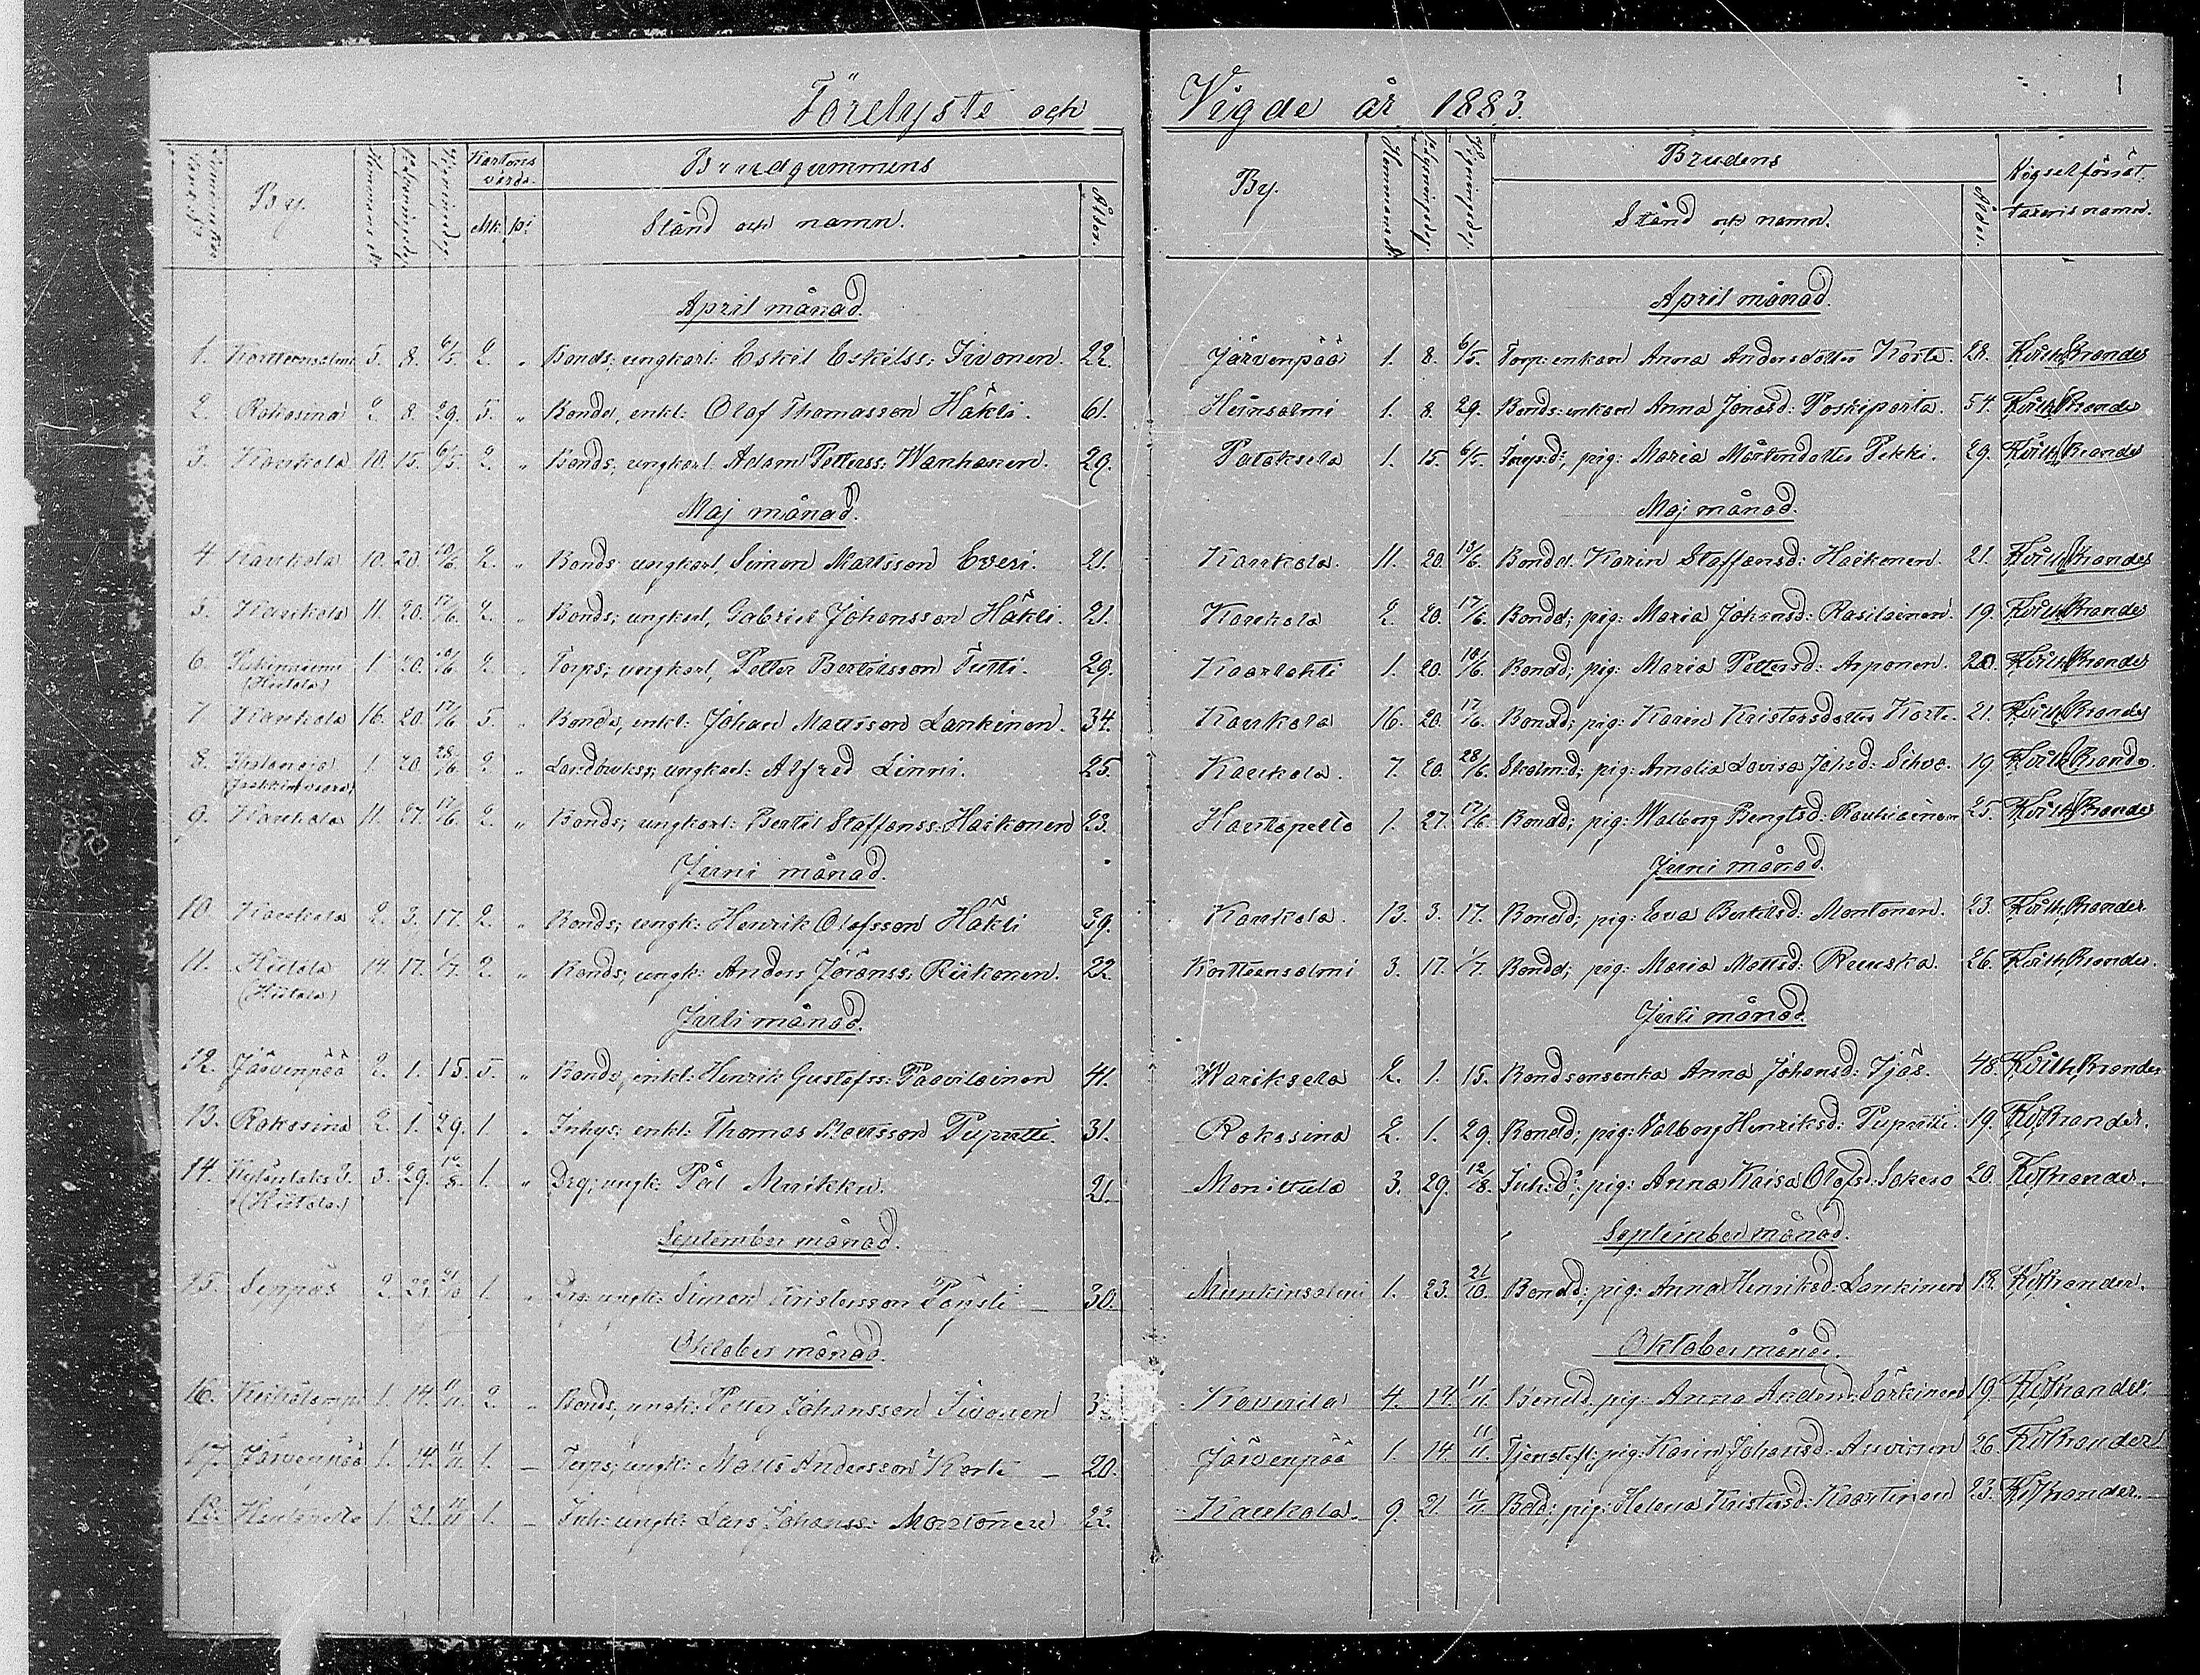 Förelyste och Vigde år 1883.
1
By. Hemmans № Lysningsdag. Vigningsdag. Kartens värde. Mk. pi Brudgummens Stånd och namn. Ålder. By. Hemmans № Lysningsdag. Vigningsdag. Brudens Stånd och namn. Ålder. Vigselförrät- tarens namn.
April månad. April månad.
1. Kortteensalmi 5. 8. 6/5. 2. „ Bonds; ungkarl: Eskil Eskilss: Iivonen. 22. Järvenpää 1. 8. 6/5. Torp: enkan Anna Andersdotter Korte. 28. Brander
2. Rokosina 2 8. 29. 5. „ Bonden, enkl: Olof Thomasson Häkli. 61. Heinsalmi 1. 8. 29. Bonds: enkan Anna Jonasd: Poskiparta. 54. Brander
3. Kaukola 10. 15. 6/5. 2. „ Bonds; ungkarl: Adam Petterss: Wanhanen. 29. Pataksela 1. 15. 6/5. pig: Maria Mårtensdotter Pekki. 29. Brander
Maj månad. Maj månad.
4. Kaukola 10. 20. 2. „ Bonds: ungkarl, Simon Mattsson Everi. 21. Kaukola. 11. 20. Bondd. Karin Staffansd: Haikonen. 21. Brander
5. Kaukola 11. 20. 17/6. 2. „ Bonds; ungkarl, Gabriel Johansson Häkli. 21. Kaukola 2. 20. 17/6. Bondd; pig: Maria Johansd: Rasilainen. 19. Brander
6. (Hiitola) 1 20. 2. „ Torps; ungkarl, Petter Bertilsson Tutti. 29. Kaarlahti 1. 20. Bondd; pig: Maria Pettersd: Asponen. 20 Brander
7. Kaukola 16. 20. 17/6 5. „ Bonde, enkl: Johan Mattsson Lankinen. 34. Kaukola 16. 20. 17/6. Bondd; pig: Karin Kristersdotter Korte. 21. Brander
8. 1 20. 28/6 2. „ Landbruks; ungkarl: Alfred Linni. 25. Kaukola. 7. 20. 28/6. pig: Amalia Lovisa Johsd: Sihvo. 19 Brander
9. Kaukola 11. 27. 17/6 2. „ Bonds; ungkarl: Bertil Staffanss: Haikonen 23. Hautapelto 1. 27. 17/6. Bondd; pig: Walborg Bengtsd: Raukiainen 25. Brander
Juni månad. Juni månad.
10. Kaukola 2. 3. 17. 2. „ Bonds; ungk: Henrik Olofsson Häkli 39. Kaukola. 13. 3. 17. Bondd; pig: Eva Bertilsd: Montonen. 23. Brander
11. Hiitola (Hiitola) 14. 17. 1/7. 2. „ Bonds; ungk: Anders Jöranss: Riikonen. 22. Kortteensalmi 3. 17. 1/7. Bondd; pig: Maria Mattsd: Ruuska. 26. Brander.
Juli månad. Juli månad
12. Järvenpää 2. 1. 15. 5. „ Bonde, enkl: Henrik Gustafss: Paavilainen 41. Wariksela 2. 1. 15. Bondeenka Anna Johansd: Ijäs. 48. Brander
13. Rokosina 2. 1. 29. 1. „ Inhys; enkl: Thomas Mattsson Puputti. 31. Rokosina 2. 1. 29. Bondd; pig: Valborg Henriksd: Puputti. 19. Brander.
14. (Hiitola) 3. 29. 12/8. 1. „ Drg; ungk: Pål Muikku. 21. Monittula 3. 29. 12/8. Inh:d; pig: Anna Kaisa Olofsd: Sokero 20. Brander.
September månad. September månad.
15. Seppäs 2. 23. 21/10 1. „ Drg: ungk: Simon Kristersson Pässli 30. Munkinsalmi 1. 23. 21/10. Bondd; pig: Anna Henriksd: Lankinen 18. Brander.
Oktober månad. Oktober månad.
16. 1. 14. 11/11. 2. „ Bonds; ungk: Petter Johansson Iivonen Kavurila 4. 14. 11/11. Bondd, pig: Anna Andersd: Särkinen 19. Brander
17. Järvenpää 1. 14. 11/11 1. — Torps; ungk: Matts Andersson Korte — 20. Järvenpää 1. 14. 11/11. Tjenstefl: pig: Karin Johansd: Auvinen 26. Brander
18. 1. 21. 11/11 1. — Inh: ungk: Lars Johanss: Martonen 22. Kaukola. 9. 21. 11/11 Bdd; pig: Helena Kristersd: Kaartinen 23. Brander.